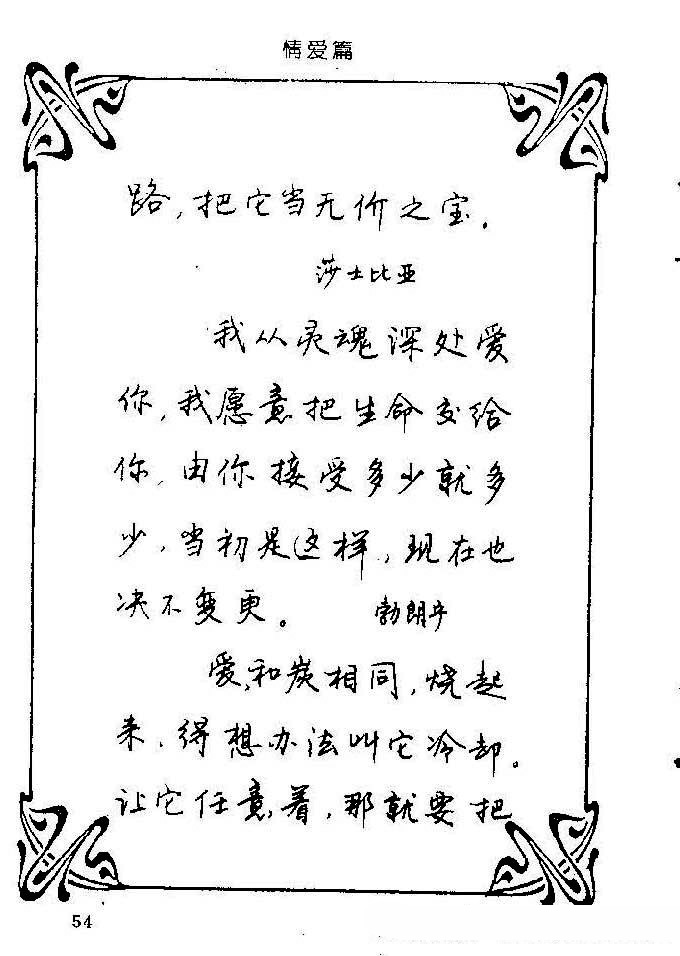 情爱篇
路，把它当无价之宝．
莎士比亚
我从灵魂深处爱
你，我愿意把生命交给
你，由你接受多少就多
少，当初是这样，现在也
决不变更。 勃朗宁
爱，和炭相同，烧起
来，得想办法叫它冷却。
让它任意着，那就要把
54